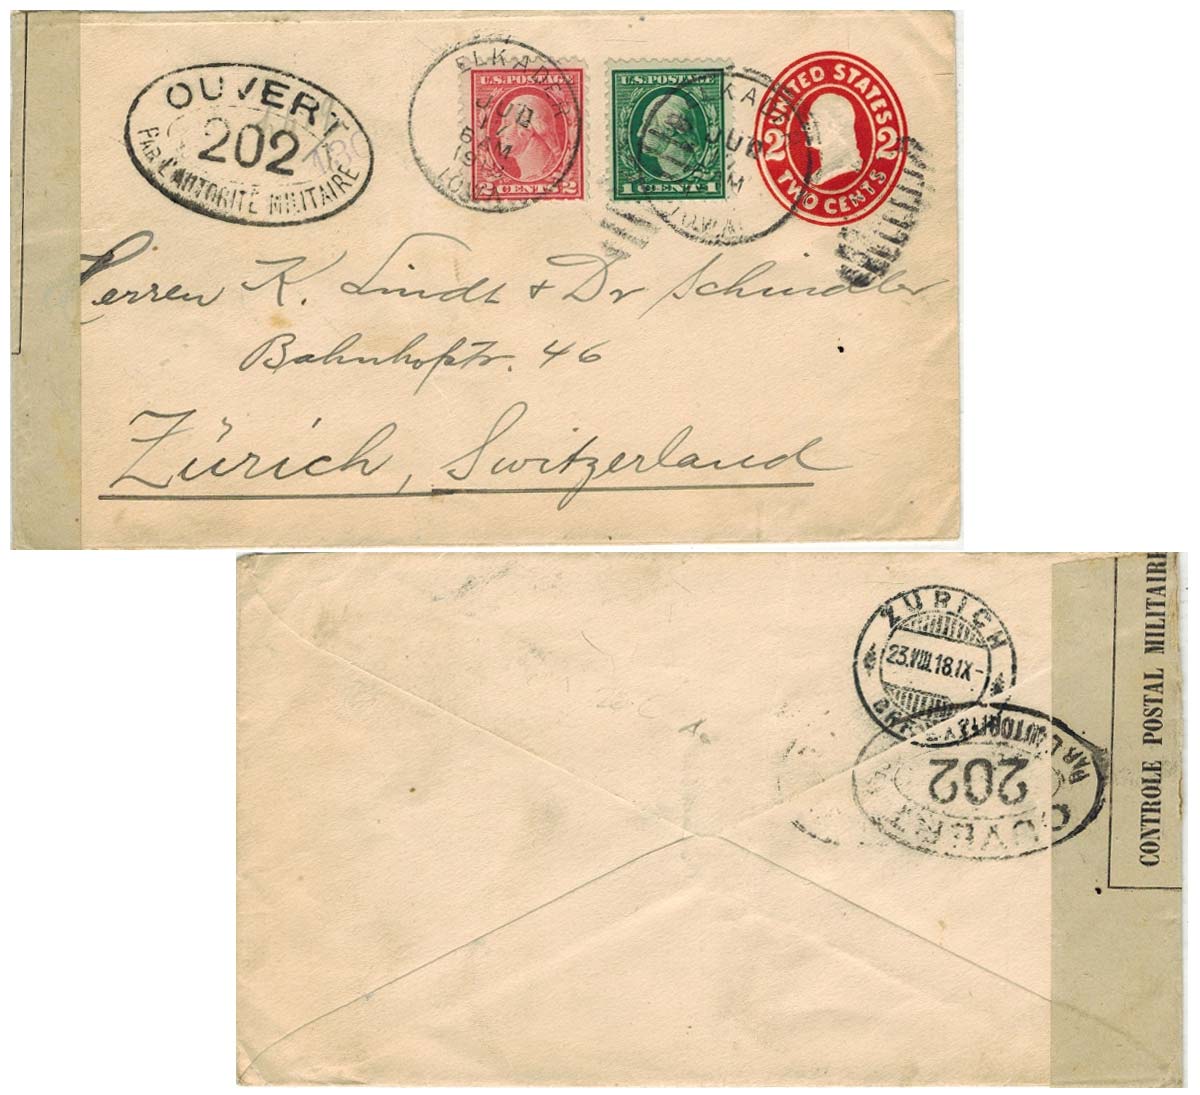 OUVERT
202
PAR L'AUTORITÉ MILITAIRE
ELKADER
6 AM
IOWA
U.S. POSTAGE
2 CENTS 2
U.S. POSTAGE
1 CENTS 1
IOWA
UNITED STATES
2 2
TWO CENTS
Herren K. Lindt & Dr Schindler
Bahnhofstr. 46
Zürich, Switzerland
ZÜRICH
23.VIII.18.IX-
CONTROLE POSTAL MILITAIRE
PAR L'AUTORITÉ
202
OUVERT